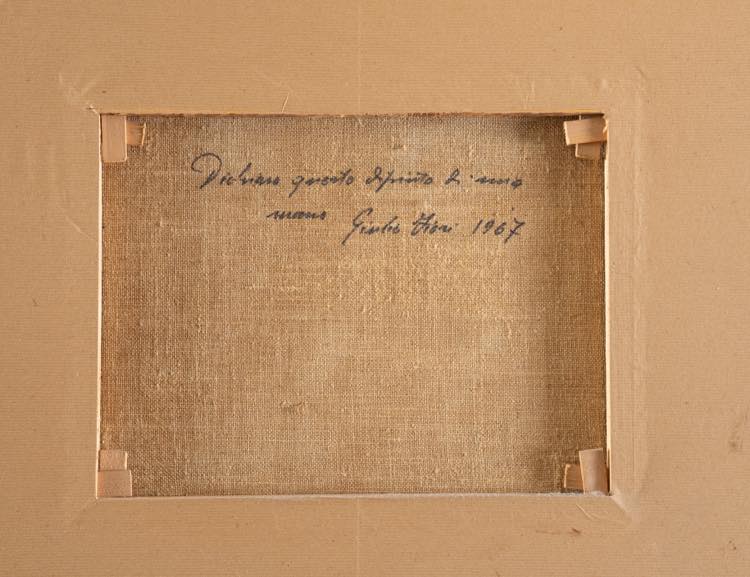 Dichiaro questo dipinto di mia
mano Giulio Fiori 1967